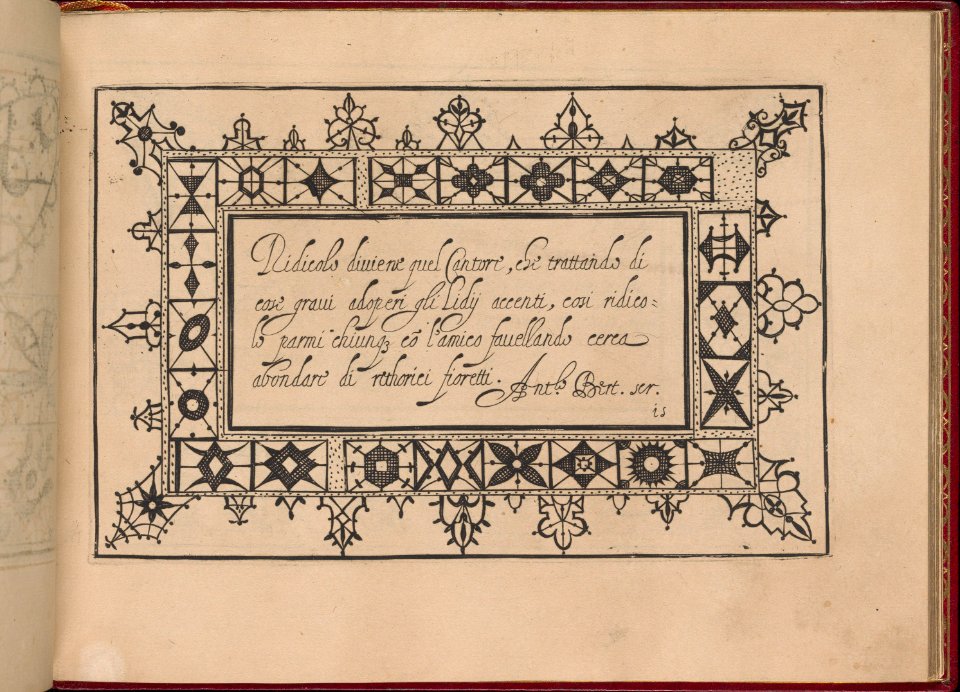 Ridicolo diviene quel Cantore, che trattando di
cose gravi adoperi gli lidij accenti, cosi ridico=
lo parmi chiunqȝ cõ l'amico favellando cerca
abondare di rethorici fioretti. Antº. Bert. scr.
15